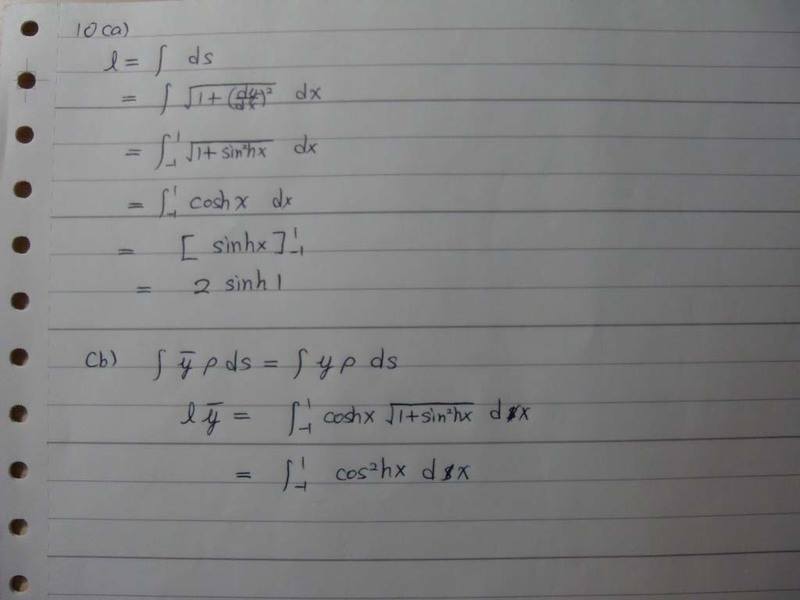 10(a)
l = ∫ ds
= ∫ √(1 + (dy/dx)²) dx
= ∫₋₁¹ √(1 + sin²hx) dx
= ∫₋₁¹ coshx dx
= [ sinhx ]₋₁¹
= 2 sinh1
(b) ∫ ȳ ρ ds = ∫ y ρ ds
l ȳ = ∫₋₁¹ coshx √(1+sin²hx) dx
= ∫₋₁¹ cos²hx dx